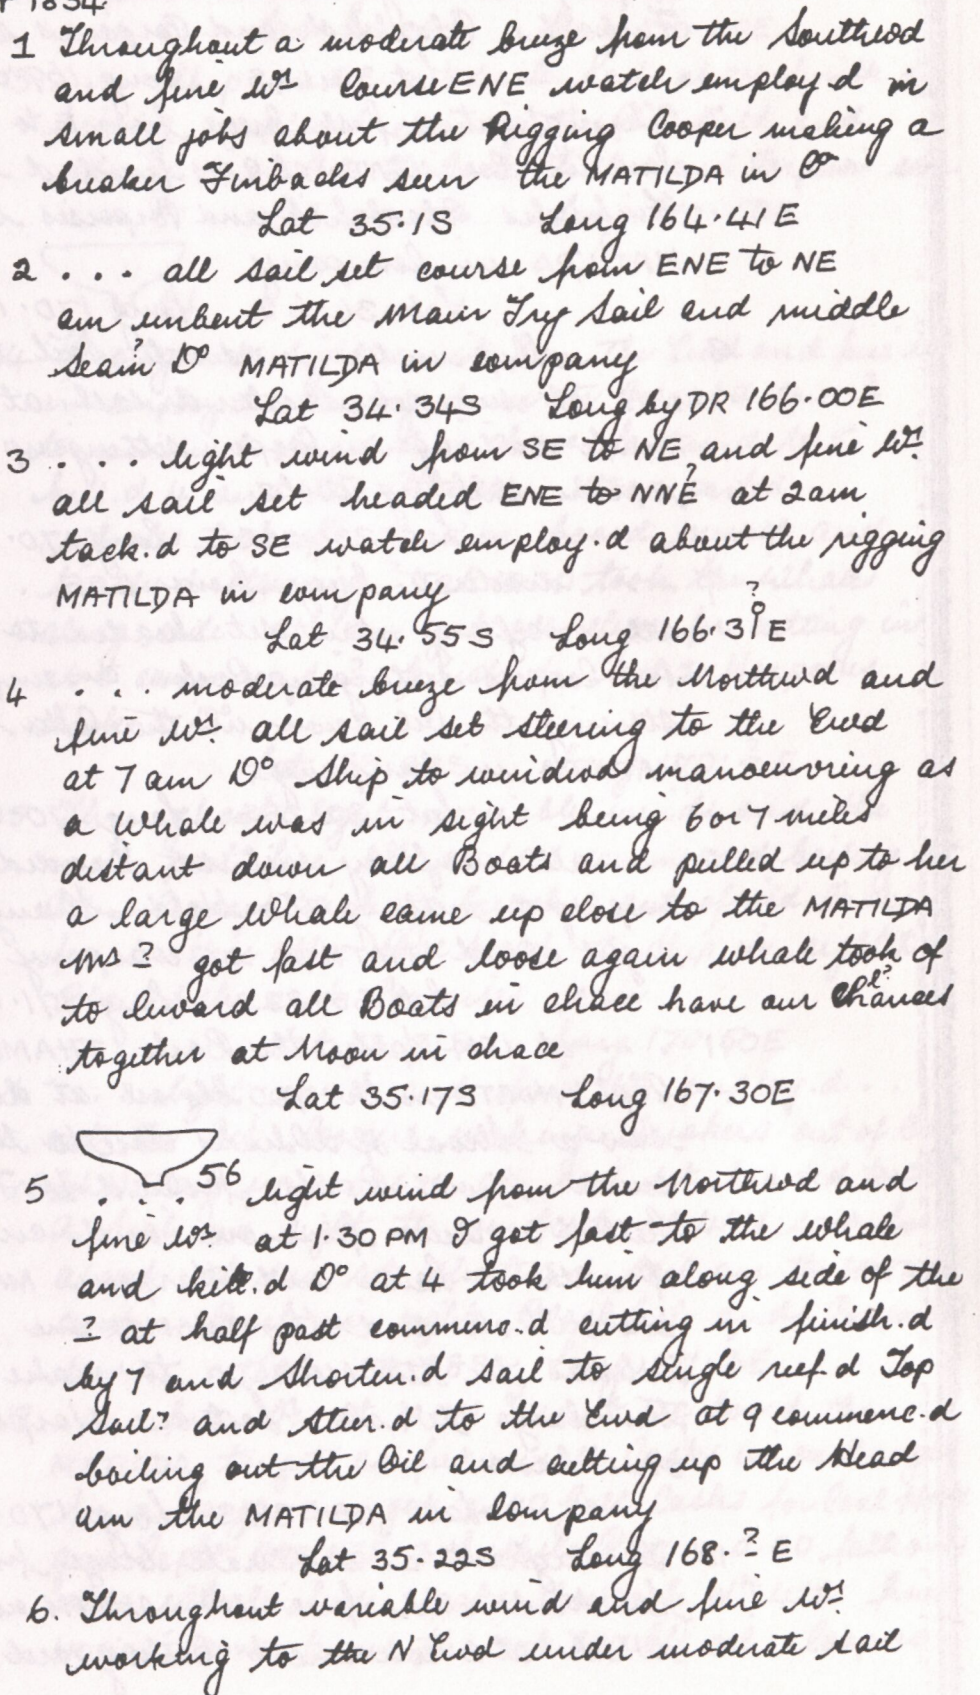 1834
1 Throughout a moderate breeze from the Southwd
and fine Wr. Course ENE watch employ.d in
small jobs about the Rigging Cooper making a
breaker Finbacks seen the MATILDA in Co
Lat 35.1S Long 164.41E
2 ... all sail set course from ENE to NE
am unbent the Main Try Sail and middle
Seam? Do MATILDA in company
Lat 34.34S Long by DR 166.00E
3 .... light wind from SE to NE and fine Wr.
all sail set headed ENE to NNE? at 2am
tack.d to SE watch employ.d about the rigging
MATILDA in company
Lat 34.55S Long 166.3?E
4 .... moderate breeze from the Northwd and
fine Wr. all sail set steering to the Ewd
at 7 am Do Ship to windwd manoeuvring as
a Whale was in sight being 6 or 7 miles
distant down all Boats and pulled up to her
a large Whale came up close to the MATILDA
Ms ? got fast and loose again whale took of
to leward all Boats in chace have our Chances
together at Noon in chace
Lat 35.17S Long 167.30E
5 .. 56 light wind from the Northwd and
fine Wr. at 1.30 PM I got fast to the whale
and kill.d Do at 4 took him along side of the
? at half past commenc.d cutting in finish.d
by 7 and Shorten.d sail to single reef.d Top
Sail? and steer.d to the Ewd at 9 commenc.d
boiling out the Oil and cutting up the Head
am the MATILDA in Company
Lat 35.22S Long 168.? E
6. Throughout variable wind and fine Wr.
working to the N Ewd under moderate sail